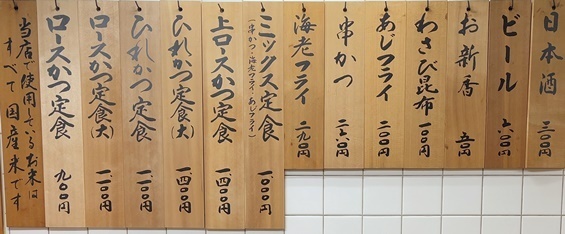 日本酒 三〇〇円
ビール 六〇〇円
お新香 五〇円
わさび昆布 一〇〇円
あじフライ 二〇〇円
串かつ 二六〇円
海老フライ 二九〇円
ミックス定食 一、〇〇〇円
(串かつ・海老フライ・あじフライ)
上ロースかつ定食 一、四〇〇円
ひれかつ定食(大) 一、四〇〇円
ひれかつ定食
ロースかつ定食(大)
ロースかつ定食 九〇〇円
当店で使用しているお米は
すべて国産米です